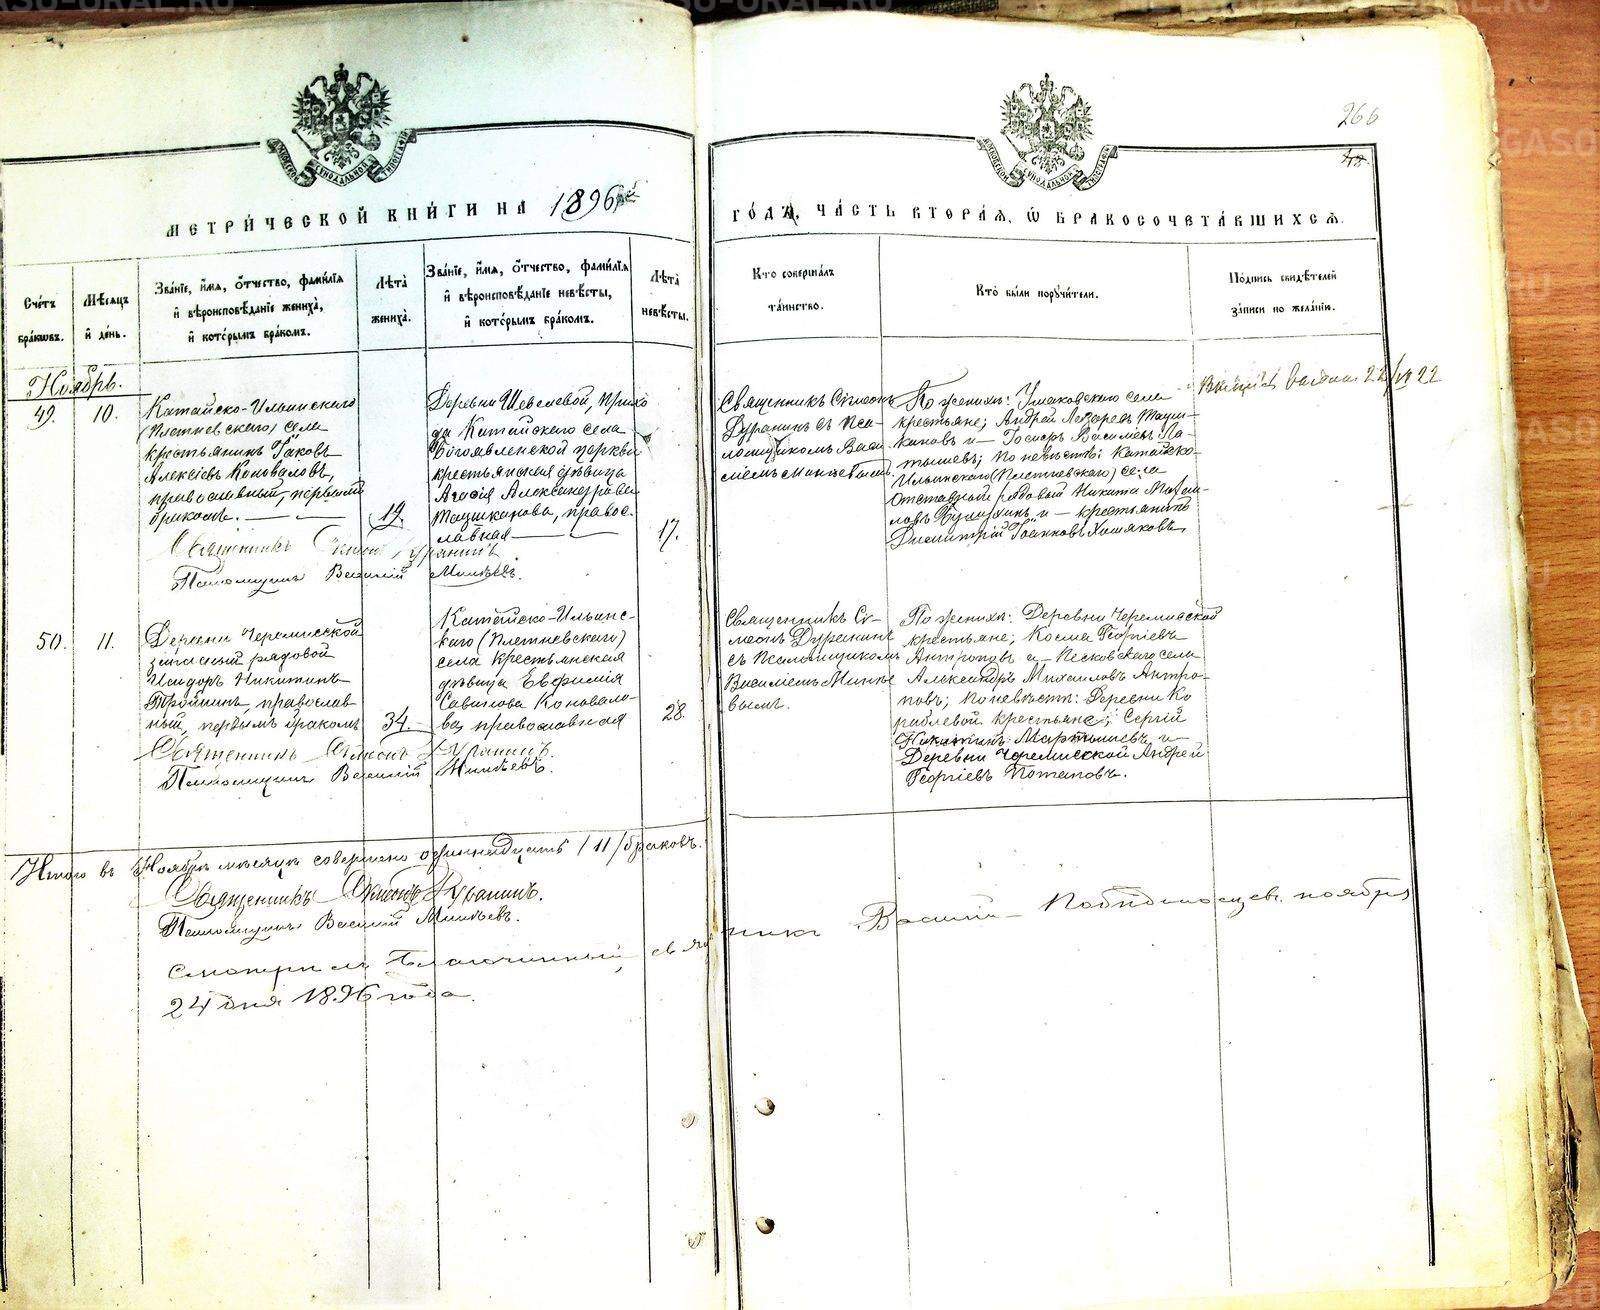 266
МЕТРИ́ЧЕСКОЙ КНИ́ГИ НА 1896й
ГО́ДЪ, ЧА́СТЬ ВТОРА́Я, Ѡ БРАКОСОЧЕТА́ВШИХСЯ.
Сче́тъ бра́кωвъ.
Мѣ́сяцъ й де́нь.
Зва́нїе, и́мя, о́тчество, фами́лїя й вѣроисповѣ́данїе жениха̀, й кото́рымъ бра́комъ.
Лѣта̀ жениха̀.
Зва́нїе, и́мя, о́тчество, фами́лїя й вѣроисповѣ́данїе невѣ́сты, й кото́рымъ бра́комъ.
Лѣта̀ невѣ́сты.
Кто̀ соверша́лъ та́инство.
Кто̀ бы́ли поручи́тели.
По́дпись свидѣ́телей за́писи по жела́нїю.
Ноябрь.
49.
10.
Катайско-Ильинскаго
(Плетневскаго) села
крестьянинъ Іаковъ
Алексѣевъ Коноваловъ,
православный, первымъ
бракомъ.
19.
Деревни Шевелевой, прихо
да Катайскаго села
Богоявленской церкви
крестьянская дѣвица
Агафія Александрова
Ташкинова, правос-
лавная
17.
Священникъ Симеонъ Дуранинъ
Псаломщикъ Василій Минѣевъ.
Священникъ Симеонъ
Дуранинъ съ Пса-
ломщикомъ Васи-
ліемъ Минѣевымъ.
По женихѣ: села
крестьяне; Андрей Лазаревъ
и Васильевъ Ла-
тышевъ; по невѣстѣ: Катайско-
Ильинскаго (Плетневскаго) села
отставный рядовый Никита
и крестьянинъ
Димитрій Іоанновъ Хомяковъ.
50.
11.
Деревни Черемисской
запасный рядовой
Исидоръ Никитинъ
православ-
ный, первымъ бракомъ
34.
Катайско-Ильинс-
каго (Плетневскаго)
села крестьянская
дѣвица Евфимія
Савинова Коновало-
ва, православная
28.
Священникъ Симеонъ Дуранинъ.
Псаломщикъ Василій Минѣевъ.
Священникъ Си-
меонъ Дуранинъ
съ Псаломщикомъ
Василіемъ Минѣе-
вымъ.
По женихѣ: Деревни Черемисской
крестьяне; Косма Георгіевъ
Антроповъ и Песковскаго села
Александръ Михаиловъ Антро-
повъ; по невѣстѣ: Деревни Ко
раблевой крестьяне; Сергій
Никитинъ Мартышевъ и
Деревни Черемисской Андрей
Георгіевъ Потаповъ.
Итого въ Ноябрѣ мѣсяцѣ совершено одиннадцать /11/ браковъ.
Священникъ Симеонъ Дуранинъ.
Псаломщикъ Василій Минѣевъ.
Смотрилъ Благочинный, священникъ Василій Побѣдоносцевъ. ноября
24 дня 1896 года.